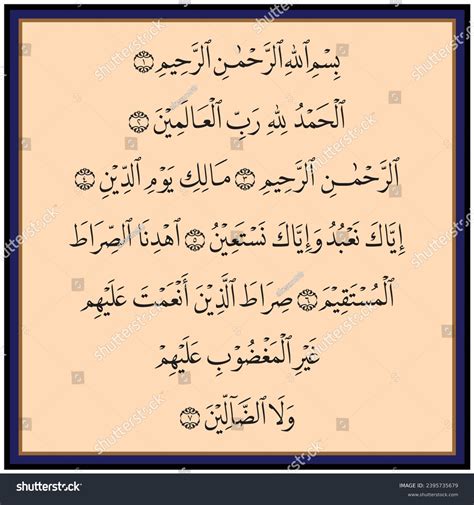 بِسْمِ ٱللهِ ٱلرَّحْمَٰنِ ٱلرَّحِيمِ ١
ٱلْحَمْدُ لِلهِ رَبِّ ٱلْعَالَمِيْنَ ٢
ٱلرَّحْمَٰنِ ٱلرَّحِيمِ ٣ مَالِكِ يَوْمِ ٱلدِّيْنِ ٤
إِيَّاكَ نَعْبُدُ وَإِيَّاكَ نَسْتَعِيْنُ ٥ ٱهْدِنَا ٱلصِّرَاطَ
ٱلْمُسْتَقِيْمَ ٦ صِرَاطَ ٱلَّذِيْنَ أَنْعَمْتَ عَلَيْهِم
غَيْرِ ٱلْمَغْضُوْبِ عَلَيْهِمْ
وَلَا ٱلضَّآلِّيْنَ ٧
shutterstock
IMAGE ID: 2395735679
www.shutterstock.com